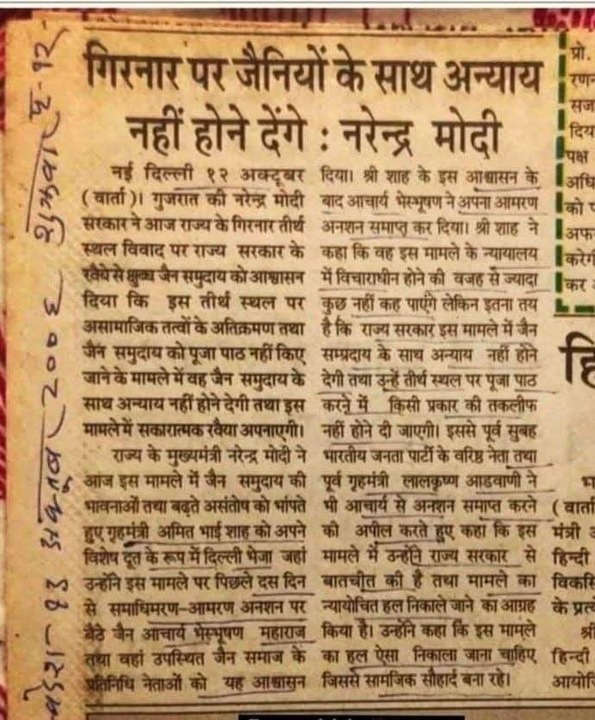 गिरनार पर जैनियों के साथ अन्याय
नहीं होने देंगे : नरेन्द्र मोदी
नई दिल्ली १२ अक्टूबर
(वार्ता)। गुजरात की नरेन्द्र मोदी
सरकार ने आज राज्य के गिरनार तीर्थ
स्थल विवाद पर राज्य सरकार के
रवैये से क्षुब्ध जैन समुदाय को आश्वासन
दिया कि इस तीर्थ स्थल पर
असामाजिक तत्वों के अतिक्रमण तथा
जैन समुदाय को पूजा पाठ नहीं किए
जाने के मामले में वह जैन समुदाय के
साथ अन्याय नहीं होने देगी तथा इस
मामले में सकारात्मक रवैया अपनाएगी।
राज्य के मुख्यमंत्री नरेन्द्र मोदी ने
आज इस मामले में जैन समुदाय की
भावनाओं तथा बढ़ते असंतोष को भांपते
हुए गृहमंत्री अमित भाई शाह को अपने
विशेष दूत के रूप में दिल्ली भेजा जहां
उन्होंने इस मामले पर पिछले दस दिन
से समाधिमरण-आमरण अनशन पर
बैठे जैन आचार्य भेरुभूषण महाराज
तथा वहां उपस्थित जैन समाज के
प्रतिनिधि नेताओं को यह आश्वासन
दिया। श्री शाह के इस आश्वासन के
बाद आचार्य भेरुभूषण ने अपना आमरण
अनशन समाप्त कर दिया। श्री शाह ने
कहा कि वह इस मामले के न्यायालय
में विचाराधीन होने की वजह से ज्यादा
कुछ नहीं कह पाएंगे लेकिन इतना तय
है कि राज्य सरकार इस मामले में जैन
सम्प्रदाय के साथ अन्याय नहीं होने
देगी तथा उन्हें तीर्थ स्थल पर पूजा पाठ
करने में किसी प्रकार की तकलीफ
नहीं होने दी जाएगी। इससे पूर्व सुबह
भारतीय जनता पार्टी के वरिष्ठ नेता तथा
पूर्व गृहमंत्री लालकृष्ण आडवाणी ने
भी आचार्य से अनशन समाप्त करने
की अपील करते हुए कहा कि इस
मामले में उन्होंने राज्य सरकार से
बातचीत की है तथा मामले का
न्यायोचित हल निकाले जाने का आग्रह
किया है। उन्होंने कहा कि इस मामले
का हल ऐसा निकाला जाना चाहिए
जिससे सामजिक सौहार्द बना रहे।
प्रो.
दिय
पक्ष
को
करेग
कर
हि
(वार्ता
मंत्री
हिन्दी
के प्रत
श्री
हिन्दी
१३ अक्तूबर २००६ शुक्रवार